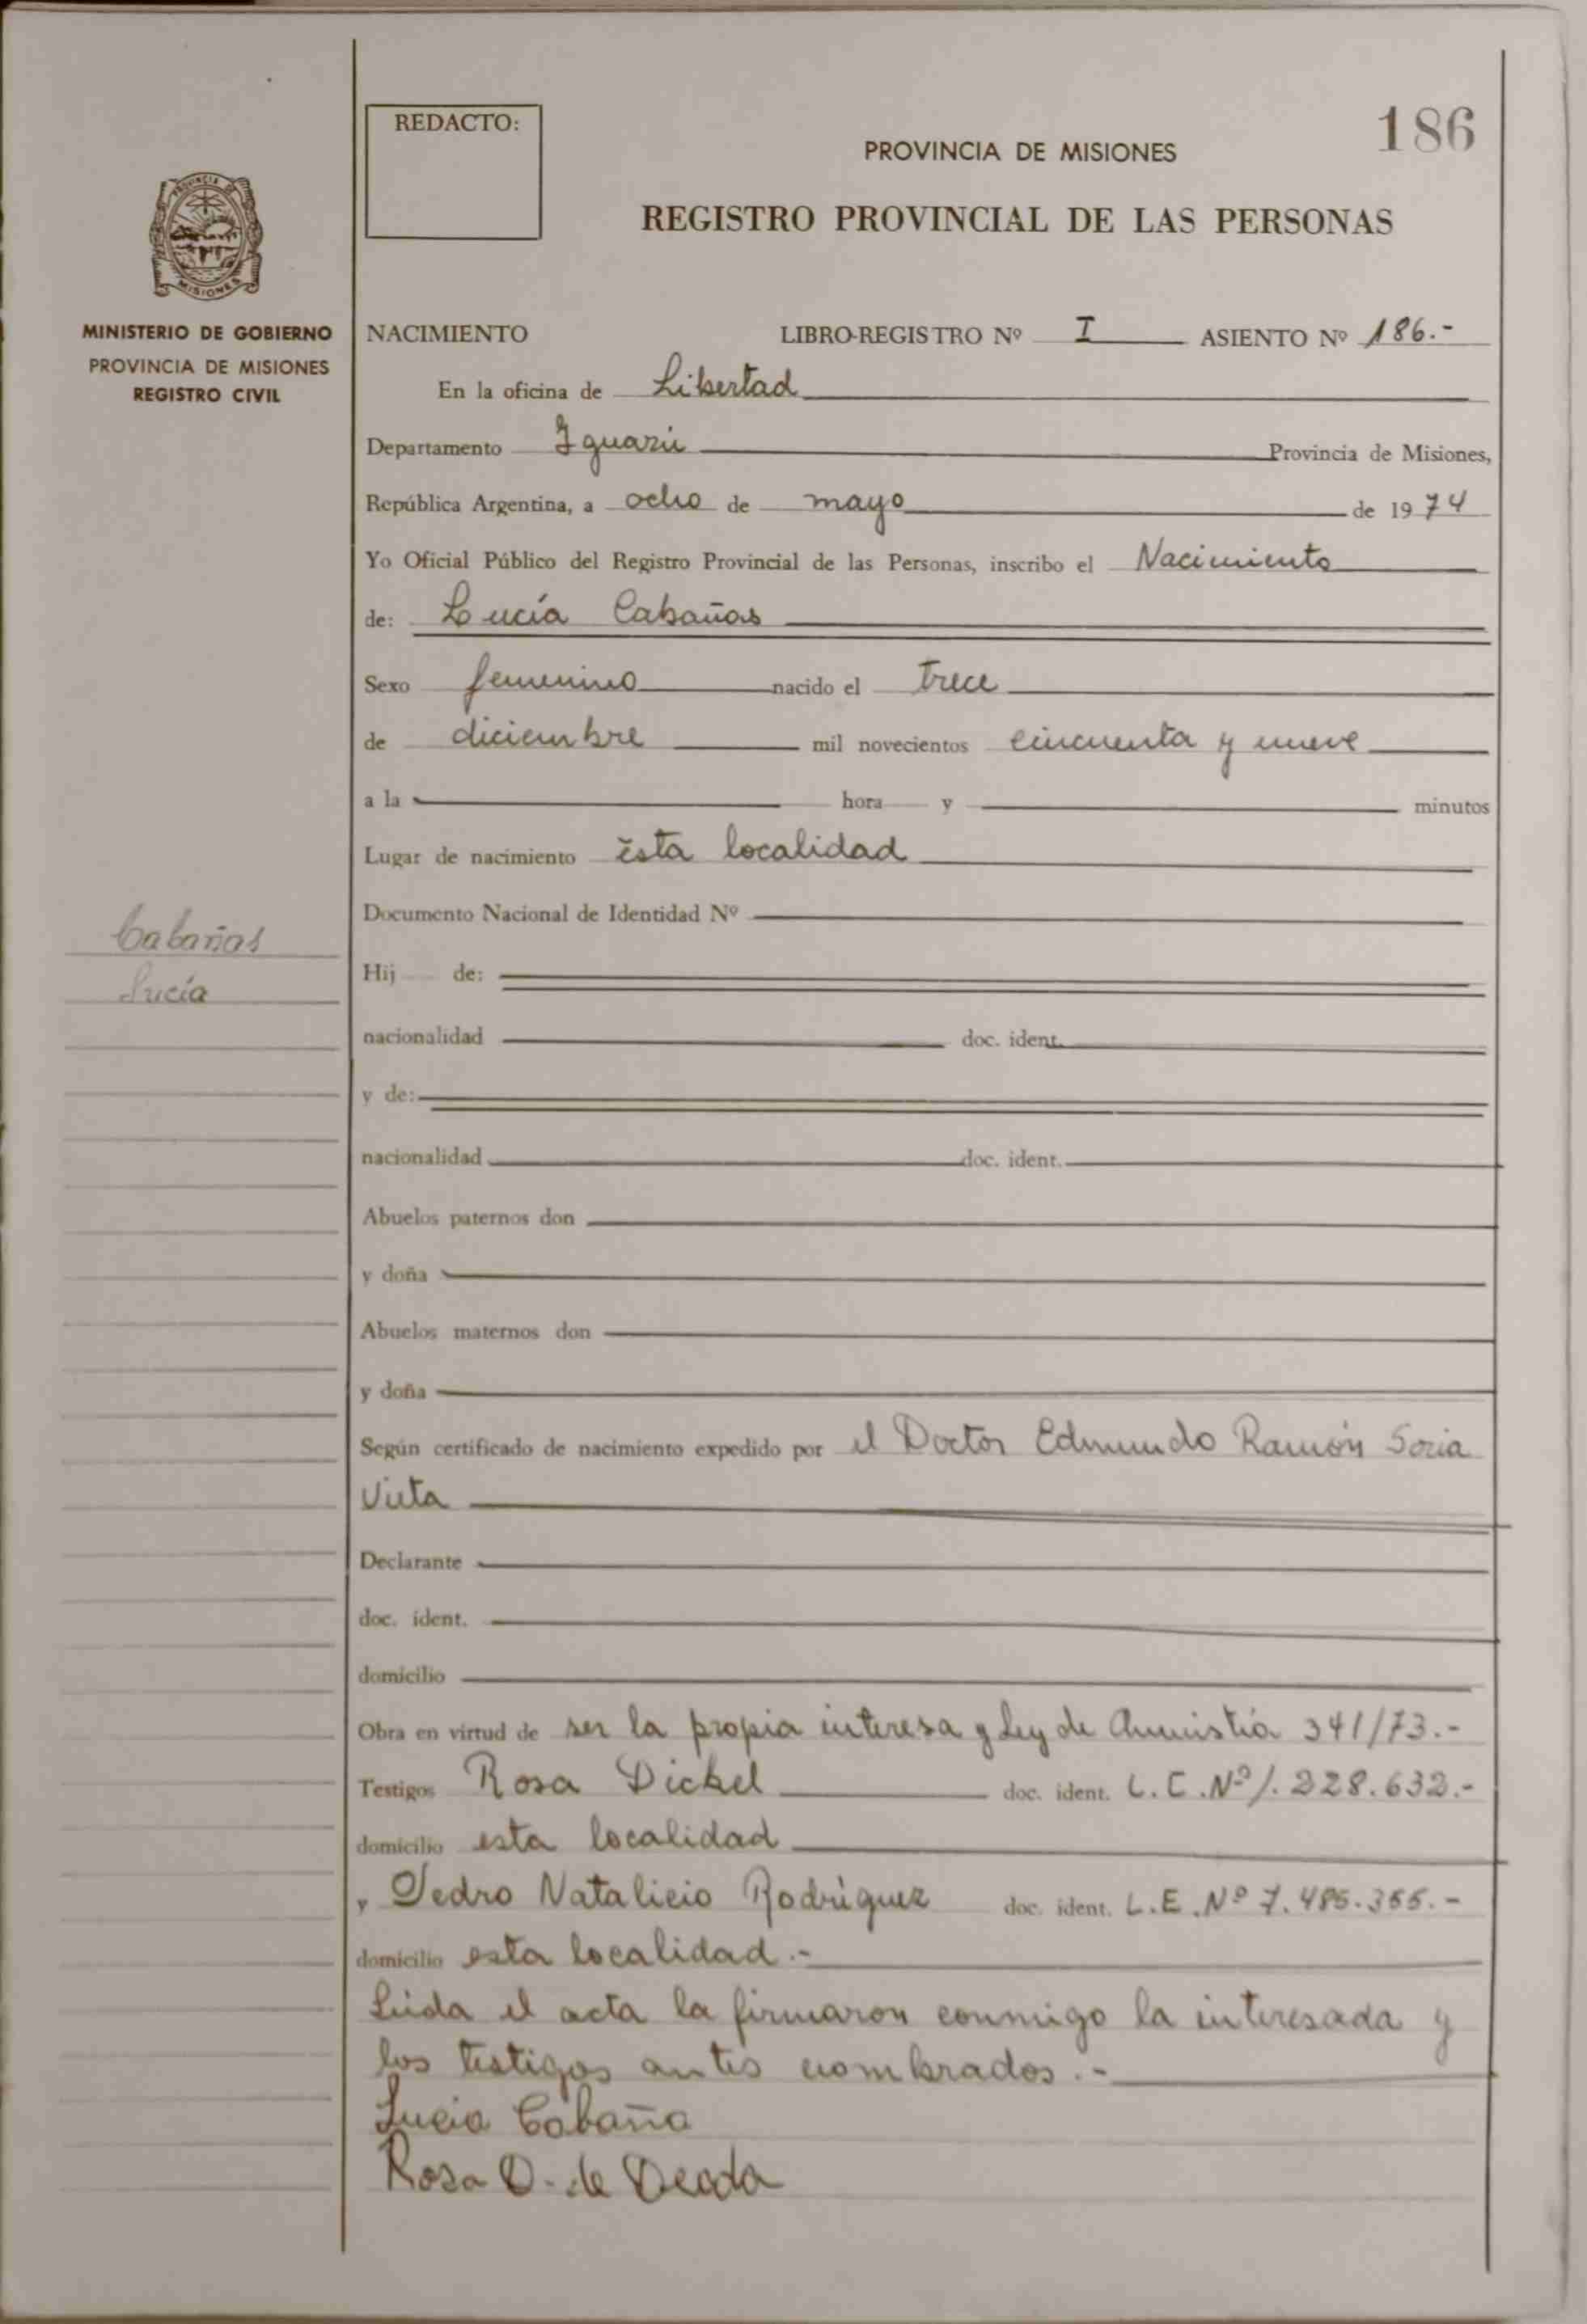 REDACTO:
186
PROVINCIA DE MISIONES
REGISTRO PROVINCIAL DE LAS PERSONAS
PROVINCIA DE
MISIONES
MINISTERIO DE GOBIERNO
PROVINCIA DE MISIONES
REGISTRO CIVIL
NACIMIENTO LIBRO-REGISTRO Nº I ASIENTO Nº 186.-
En la oficina de Libertad
Departamento Iguazú Provincia de Misiones,
República Argentina, a ocho de mayo de 1974
Yo Oficial Público del Registro Provincial de las Personas, inscribo el Nacimiento
de: Lucía Cabañas
Sexo femenino nacido el trece
de diciembre mil novecientos cincuenta y nueve
a la hora y minutos
Lugar de nacimiento ésta localidad
Documento Nacional de Identidad Nº
Cabañas
Lucía
Hij de:
nacionalidad doc. ident.
y de:
nacionalidad doc. ident.
Abuelos paternos don
y doña
Abuelos maternos don
y doña
Según certificado de nacimiento expedido por el Doctor Edmundo Ramón Soria
Vieta
Declarante
doc. ident.
domicilio
Obra en virtud de ser la propia interesa y Ley de Amnistía 341/73.-
Testigos Rosa Dickel doc. ident. L.C. Nº 1.228.632.-
domicilio esta localidad
y Pedro Natalicio Rodríguez doc. ident. L.E. Nº 7.485.355.-
domicilio esta localidad.-
Leída el acta la firmaron conmigo la interesada y
los testigos antes nombrados.-
Lucia Cabaña
Rosa D. de